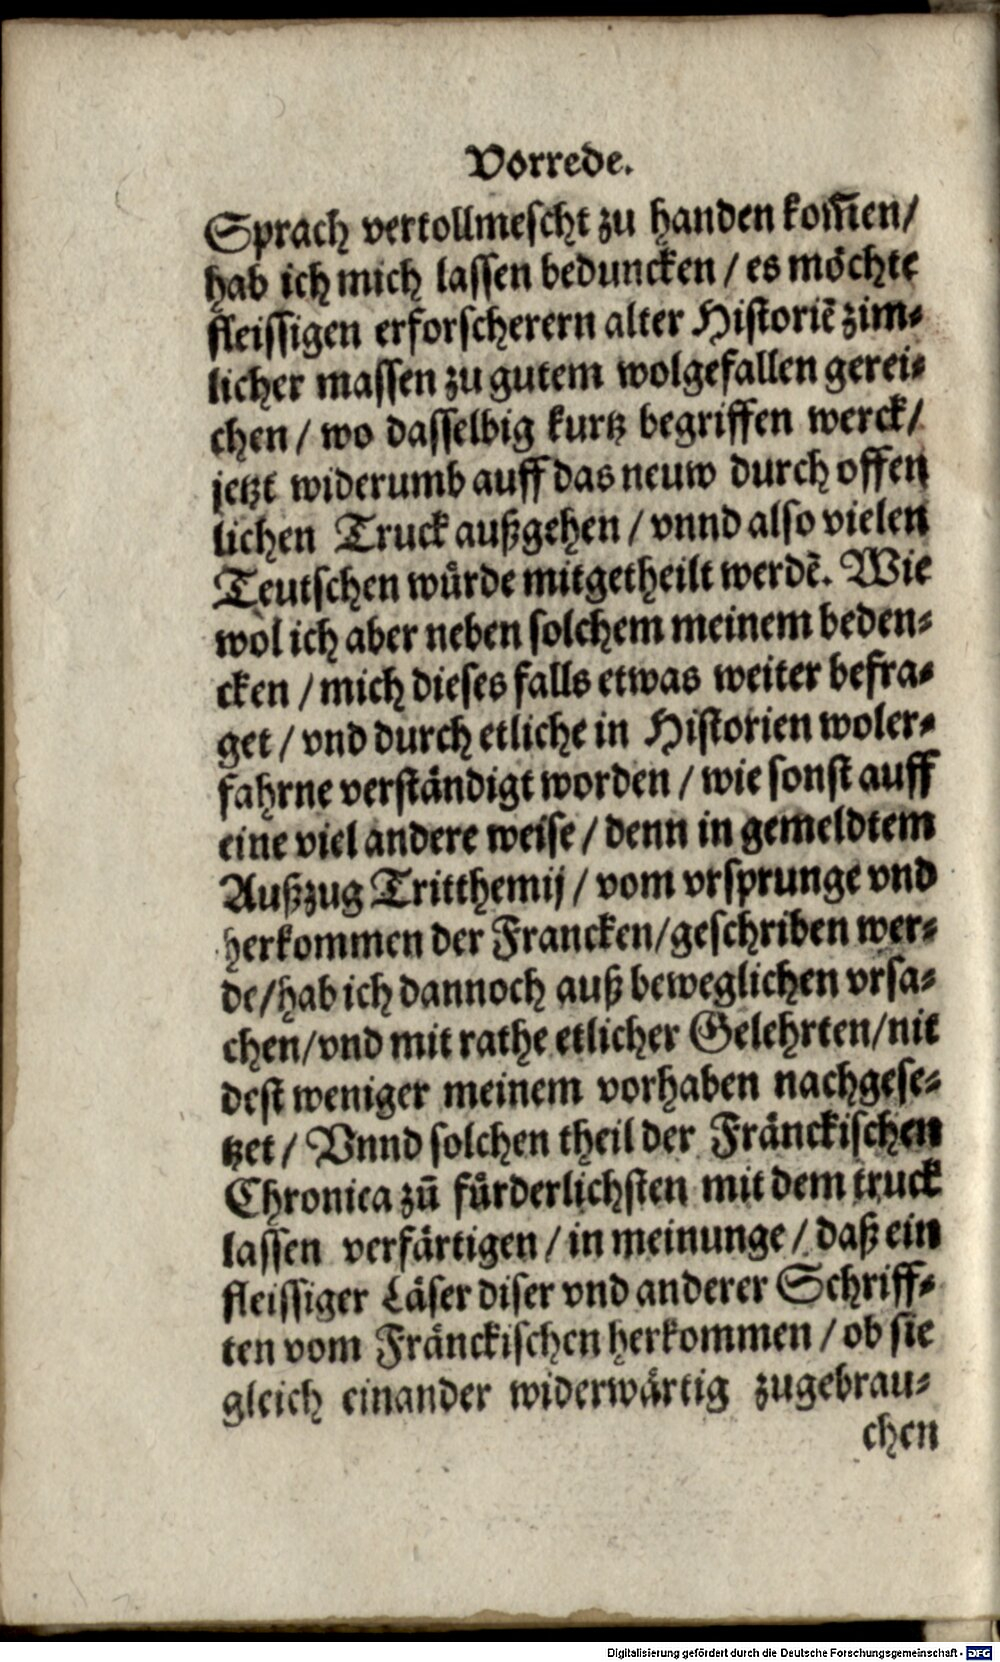 Vorrede.
Sprach vertollmescht zu handen kom̃en/
hab ich mich lassen beduncken / es möchte
fleissigen erforscherern alter Historiẽ zim⸗
licher massen zu gutem wolgefallen gerei⸗
chen / wo dasselbig kurtz begriffen werck/
jetzt widerumb auff das neuw durch offen
lichen Truck außgehen / vnnd also vielen
Teutschen würde mitgetheilt werdẽ. Wie
wol ich aber neben solchem meinem beden⸗
cken / mich dieses falls etwas weiter befra⸗
get / vnd durch etliche in Historien woler⸗
fahrne verständigt worden / wie sonst auff
eine viel andere weise / denn in gemeldtem
Außzug Tritthemij / vom vrsprunge vnd
herkommen der Francken/geschriben wer⸗
de/hab ich dannoch auß beweglichen vrsa⸗
chen/vnd mit rathe etlicher Gelehrten/nit
dest weniger meinem vorhaben nachgese⸗
tzet / Vnnd solchen theil der Fränckischen
Chronica zũ fürderlichsten mit dem truck
lassen verfärtigen / in meinunge / daß ein
fleissiger Läser diser vnd anderer Schriff⸗
ten vom Fränckischen herkommen / ob sie
gleich einander widerwärtig zugebrau⸗
chen
Digitalisierung gefördert durch die Deutsche Forschungsgemeinschaft - DFG